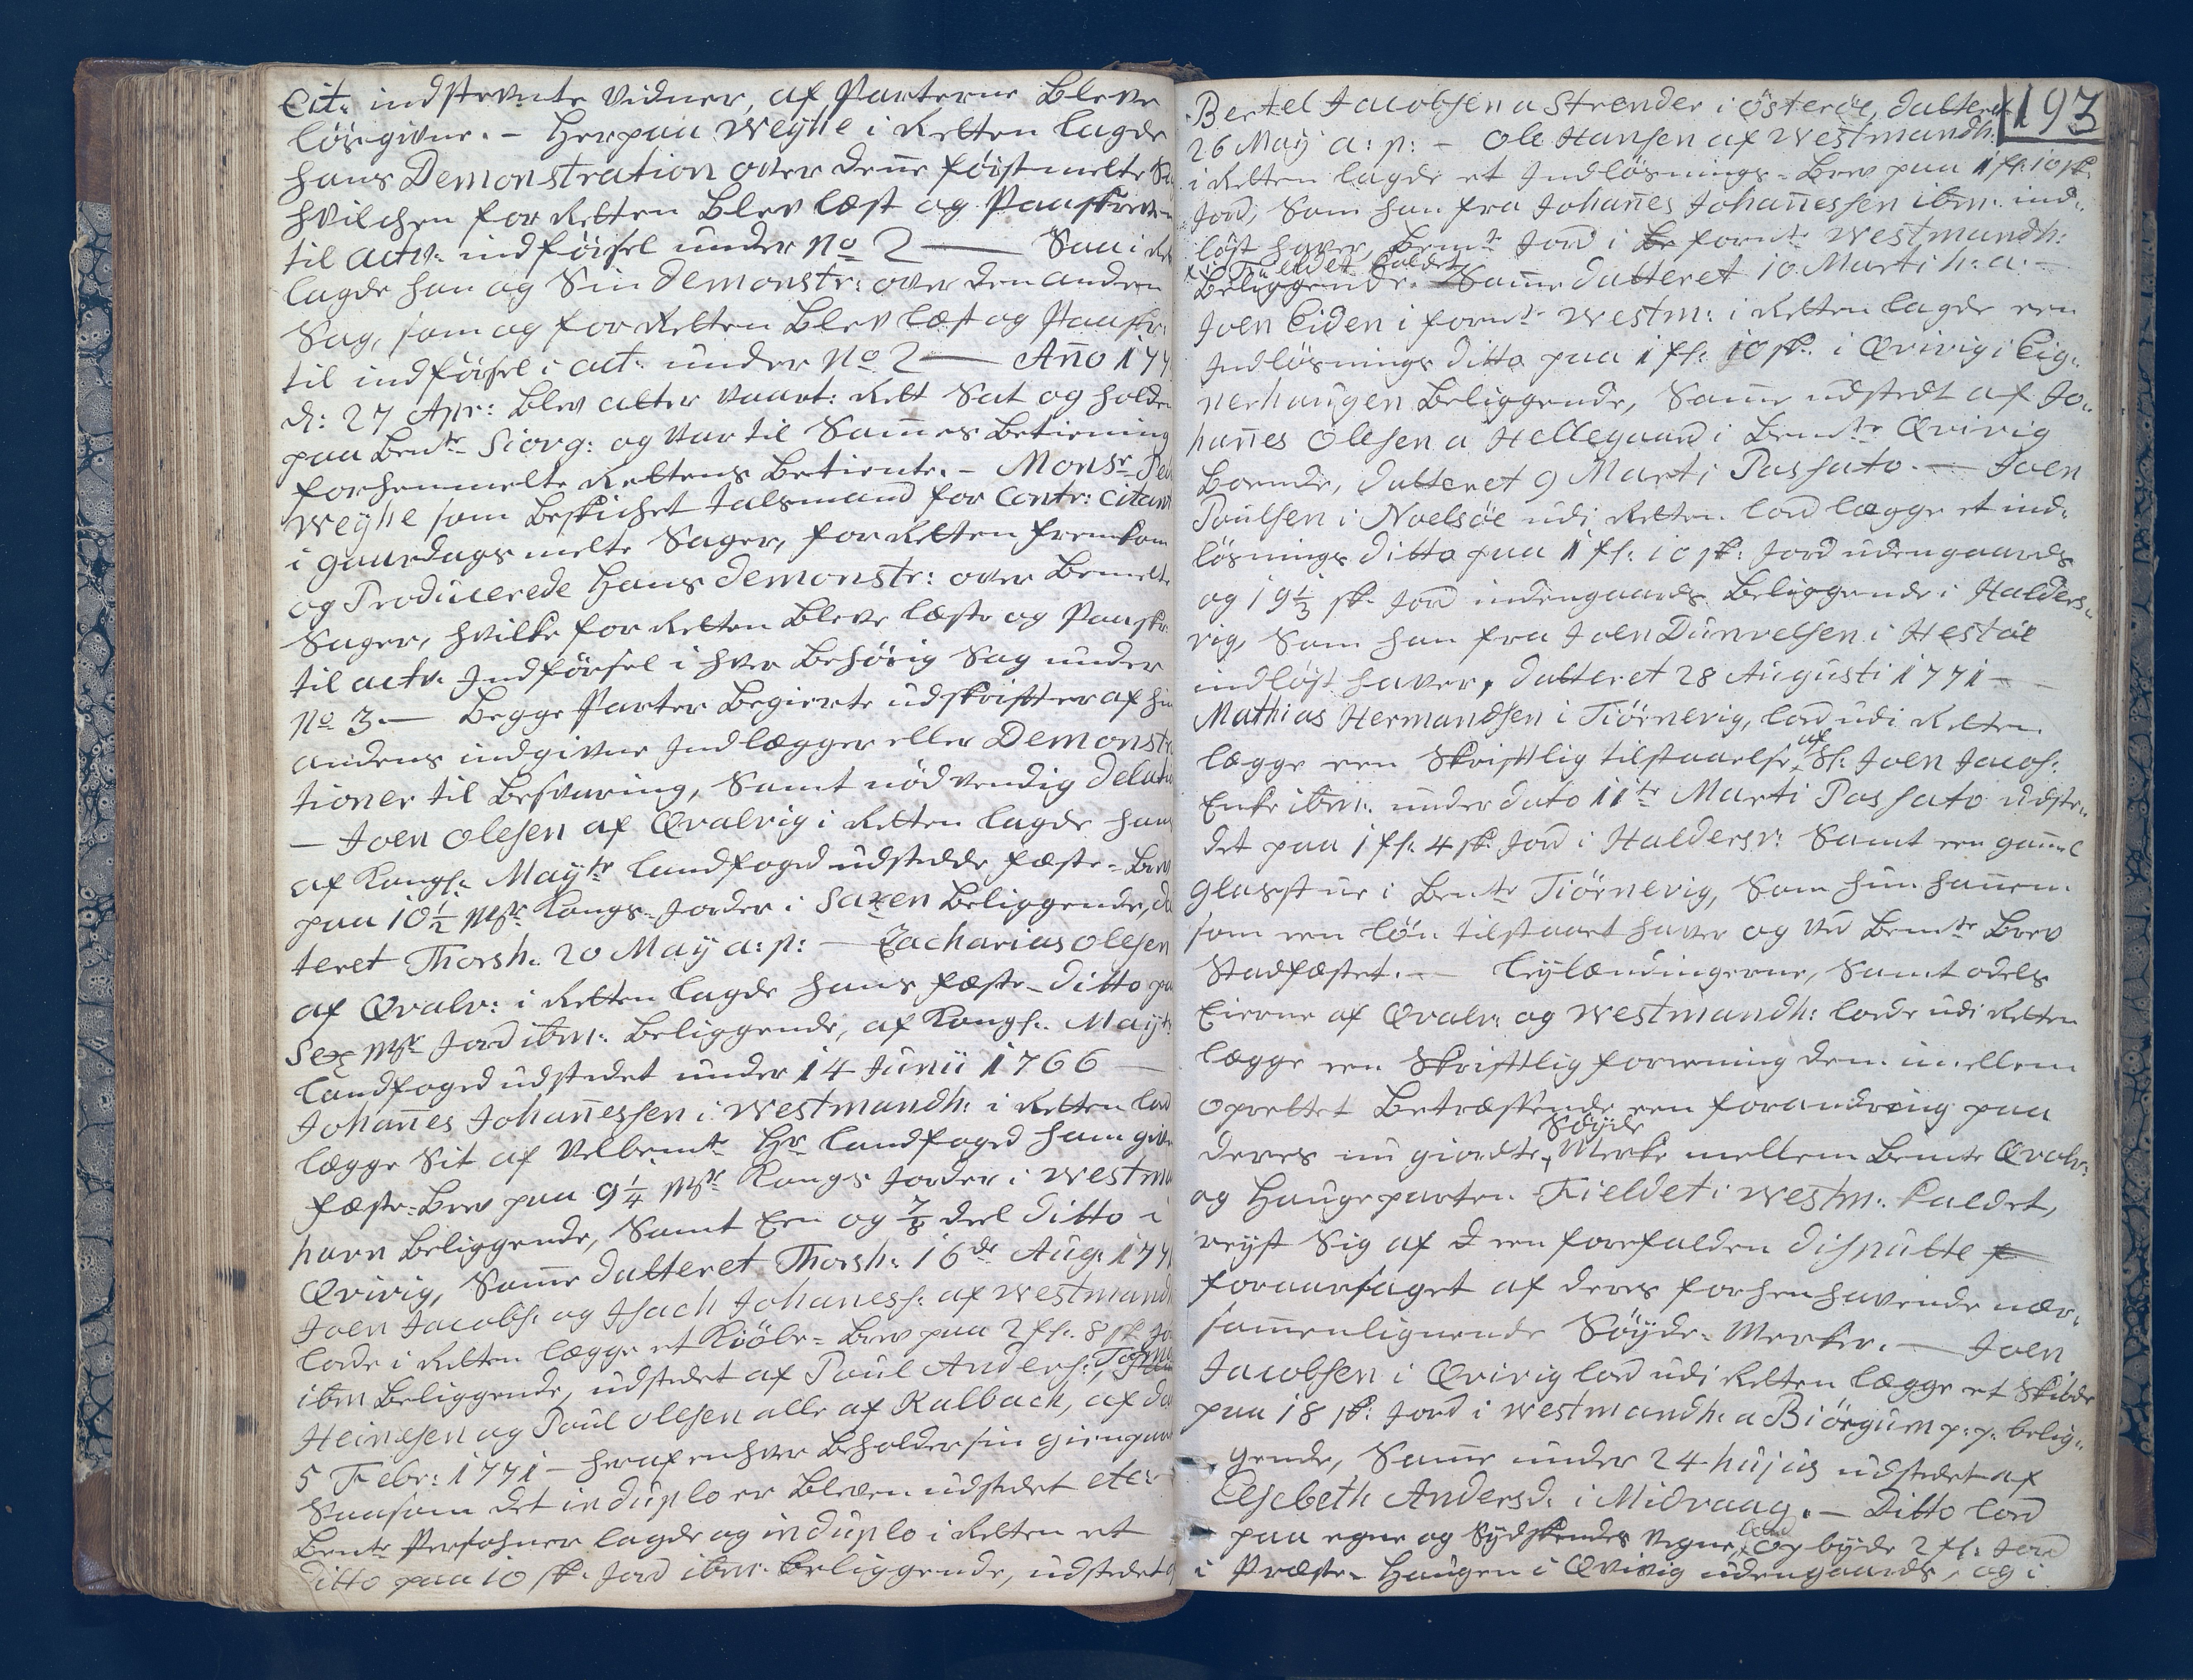 Cit: indstevnte Vidner, af Parterne bleve
løsgivne. – Herpaa Weyhe i Retten lagde
hans Demonstration over denne førstmelte
hvilchen for Retten blev læst og Paaskreven
til acts: indførsel under No 2 — Saa i
lagde han og Sin demonstr: over den anden
Sag, som og for Retten blev læst og Paaskr:
til indførsel i act: under No 2 — Año 177
d: 27 Apr: blev atter Vaart: Rett Sat og holden
paa bem:te Siorg: og Var til Sam̄es betiening
forhenmelte Rettens betiente. – Monsr
Weyhe som beskichet talsmand for Contr: Citant
i gaardags melte Sager, for Retten fremkom
og Producerede hans demonstr: over bemelte
Sager, hvilke for Retten bleve læste og Paaskr:
til acts. Indførsel i hver behørig Sag under
No 3. — begge Parter begierte udskrifter af hin
andens indgivne Indlægger eller Demonstr
tioner til besvaring, Samt nødvendig delatio
— Joen Olesen af Qvalvig i Retten lagde hans
af Kongl: Mayts landfoged udstedde fæste-brev
paa 10½ Mkr Kongs-Jorder i Saxen beliggende, da
teret Thorsh. 20 May a: p: — Zacharias Olesen
af Qvalv: i Retten lagde hans fæste-ditto paa
Sex Mkr Jord ibm: beliggende, af Kongl. Mayts
landfoged udstedet under 14 Junii 1766 —
Johan̄es Johan̄essen i Westmandh: i Retten lod
lægge Sit af Velbem:te Hr landfoged ham givne
fæste-brev paa 9¼ Mkr Kongs Jorder i Westma
havn beliggende, Samt Een og 7/8 deel ditto i
Qvivig, Sam̄e datteret Thorsh: 16de Aug: 177
Joen Jacobs: og Isach Johaness: af Westmandh
lode i Retten lægge et Kiøbe-brev paa 2 fl: 8 sk Jo
ibm beliggende, udstedet af Poul Anders:,
Heinesen og Poul Olesen alle af Kalbach, af da
5 Febr: 1771 – heraf enhver beholder sin gienpart
Saasom det in duplo er bleven udstedet etc:
bemte Persohner lagde og in duplo i Retten et
ditto paa 10 sk. Jord ibm. beliggende, udstedet
193
Bertel Jacobsen a Strender i Østerøe, datteret
26 May a: p: – Ole Hansen af Westmandh.
i Retten lagde et Indløsnings-brev paa 1 fl: 10 sk
Jord, Som han fra Johan̄es Johan̄essen ibm. ind-
løst haver, bemte Jord i be forn:te Westmandh:
Fieldet kaldet
beliggende. Sam̄e datteret 10 Marti h: a: –
Joen Eiden i forn:te Westm: i Retten lagde een
Indløsnings ditto paa 1 fl: 10 sk. i Qvivig i Eig-
nerhaugen beliggende, Sam̄e udstedt af Jo-
han̄es Olesen a Hellegaard i bemte Qvivig
boende, datteret 9 Marti Passato. — Joen
Poulsen i Noelsøe udi Retten lod lægge et ind-
løsnings ditto paa 1 fl: 10 sk: Jord udengaards
og 19⅓ sk. Jord indengaards beliggende i Halders-
vig, Som han fra Joen Dunvelsen i Hestøe
indløst haver, datteret 28 Augusti 1771 –
Mathias Hermandsen i Tiørnevig, lod udi Retten
lægge een Skriftlig tilstaaelse af Sl. Joen Jacobs:
Enke ibm: under dato 11te Marti Passato udste-
det paa 1 fl: 4 sk. Jord i Haldersv: Samt een gam̄el
glasstue i bemte Tiørnevig, Som hun han̄em
som een løn tilstaaet haver og ved bemte brev
Stadfæstet. — leylændingerne, Samt odels
Eierne af Qvalv: og Westmandh: lode udi Retten
lægge een Skriftlig forening dem imellem
oprettet betreffende een forandring paa
deres nu giordte Søyde Merke mellem bemte Qvalv:
og Haugeparten Fieldet i Westm: kaldet,
reyst Sig af d een forefalden dispulte f
foraarsaget af deres forhenhavende nær-
sam̄enlignende Søyde-Merker. — Joen
Jacobsen i Qvivig lod udi Retten lægge et Skiøde
paa 18 sk: Jord i Westmandh. a Biørgum p: p. belig-
gende, Sam̄e under 24 hujus udstedet af
Elsebeth Andersd. i Midvaag. – Ditto lod
paa egne og Sydskendes Vegne, lod op byde 2 fl. Jord
i Præste-Haugen i Qvivig udengaards, og i